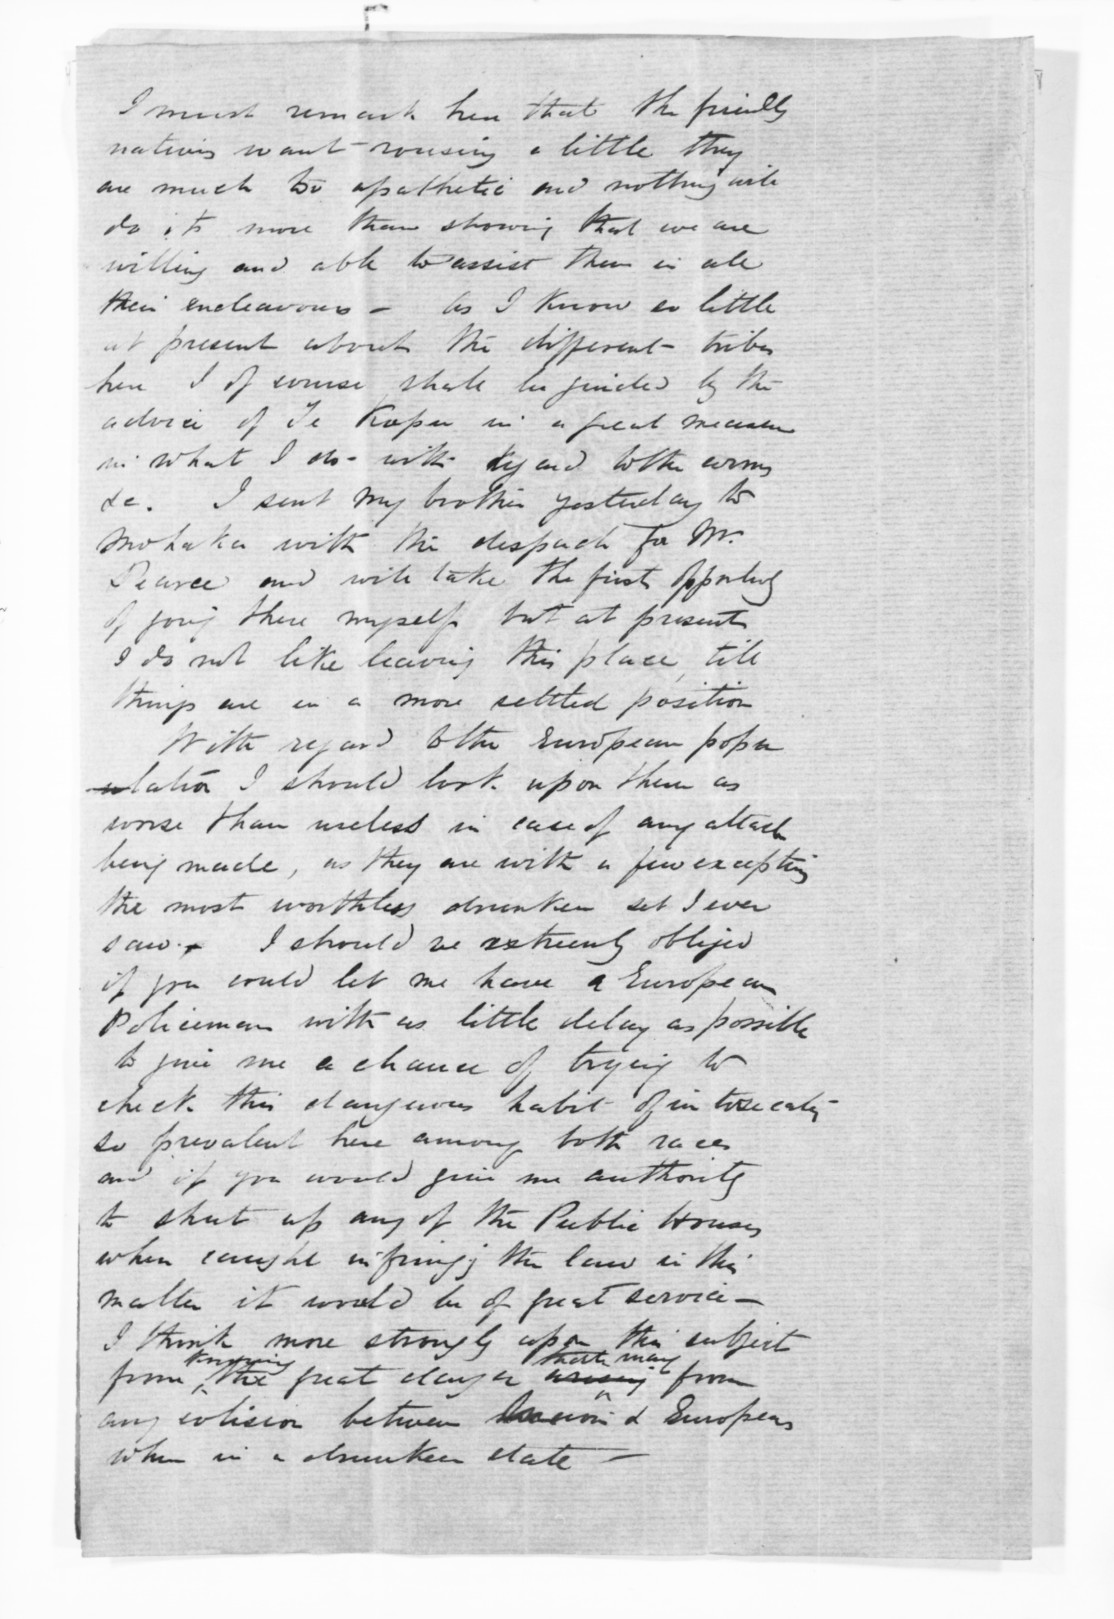 I must remark here that the friendly
natives want rousing a little they
are much too apathetic and nothing will
do it more than showing that we are
willing and able to assist them in all
their endeavours - As I know so little
at present about the different tribes
here I of course shall be guided by the
advice of Te Kopu in a great measure
in what I do - with regard to the arms
&c. I sent my brother yesterday to
Mohaka with the despatch for Mr.
Pearce and will take the first opportunity
of going there myself but at present
I do not like leaving this place, till
things are in a more settled position
With regard to the European popu
-ulation I should look upon them as
worse than useless in case of any attack
being made, as they are with a few exceptions
the most worthless drunken set I ever
saw. - I should be extremely obliged
if you could let me have a European
Policeman with as little delay as possible
to give me a chance of trying to
check this dangerous habit of intoxicating
so prevalent here among both races
and if you would give me authority
to shut up any of the Public Houses
when caught infringing the law in this
matter it would be of great service -
I think more strongly upon this subject
from knowing the great danger arising that may from
any colision between & Europeans
when in a drunken state -